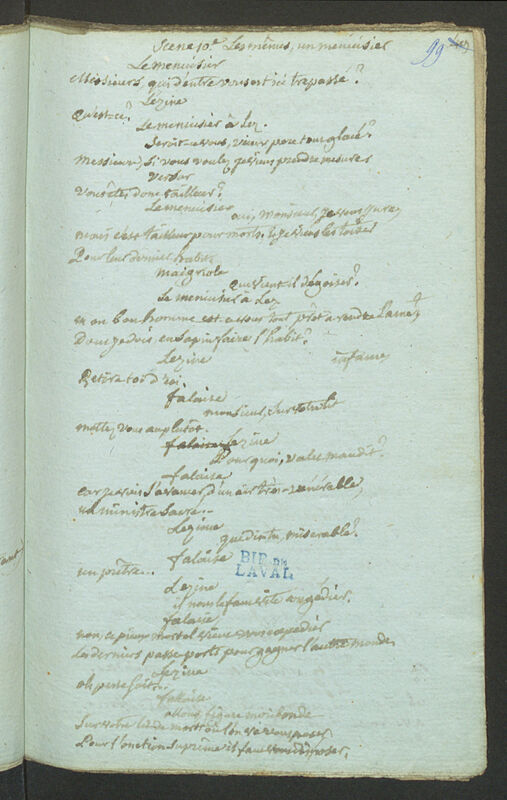 99
Scene 10.e Les mêmes, un menuisier
Le menuisier
Messieurs, qui d'entre vous est ici trepassé?
Lezine
Qu'est-ce?
Le menuisier à Lez.
Serait-ce vous, vieux pere tout glacé?
messieurs, si vous voulez que j'en prendre mesures
Versar
Vous êtes donc tailleur?
Le menuisier
oui, monsieur, je vous jure,
mais c'est tailleur pour morts, et je viens les toiser
Pour leur donner habits
maigriole
Que vient-il dégoiser?
Le menuisier à Lez
mon bonhomme est-ce vous tout prêt à rendre l'ame,
Dont je dois en sapin faire l'habit?
Lezine
infame
Retire toi d'ici.
falaise
monsieur, sur votre lit
mettez vous au plutôt.
Lezine
Pourquoi, valet maudit?
falaise
car je vois s'avancer d'un air très-vénérable,
un ministre sacré..
Lezine
que dis tu, miserable?
falaise
un prêtre..
BIB. DE
LAVAL
Lezine
il nous le faut vite congédier.
falaise
non, ce pieux mortel vient vous expedier
les derniers passe-ports pour gagner l'autre monde
Lezine
falaise
allons figure moribonde
Sur votre lit de mort où l'on va vous poser
Pour l'onction suprême il faut vous disposer,